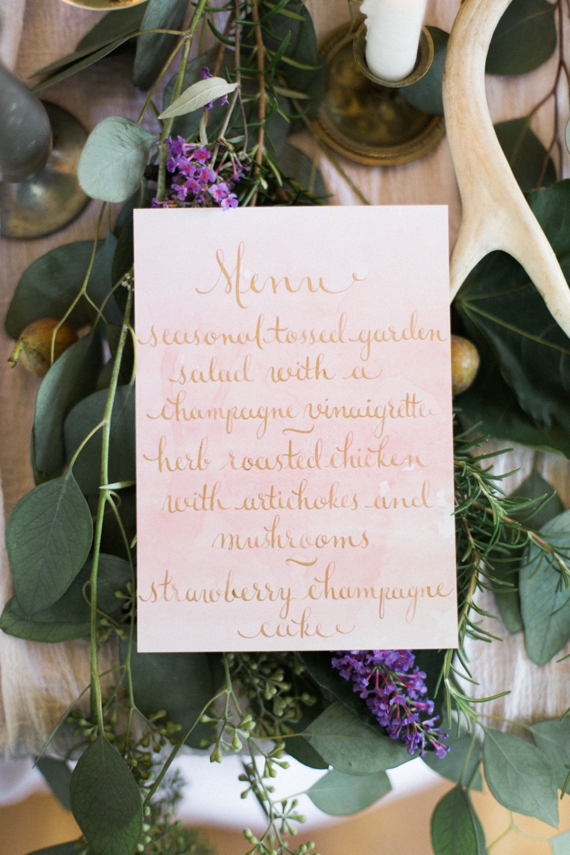 Menu
seasonal tossed garden
salad with a
champagne vinaigrette
~
herb roasted chicken
with artichokes and
mushrooms
~
strawberry champagne
cake